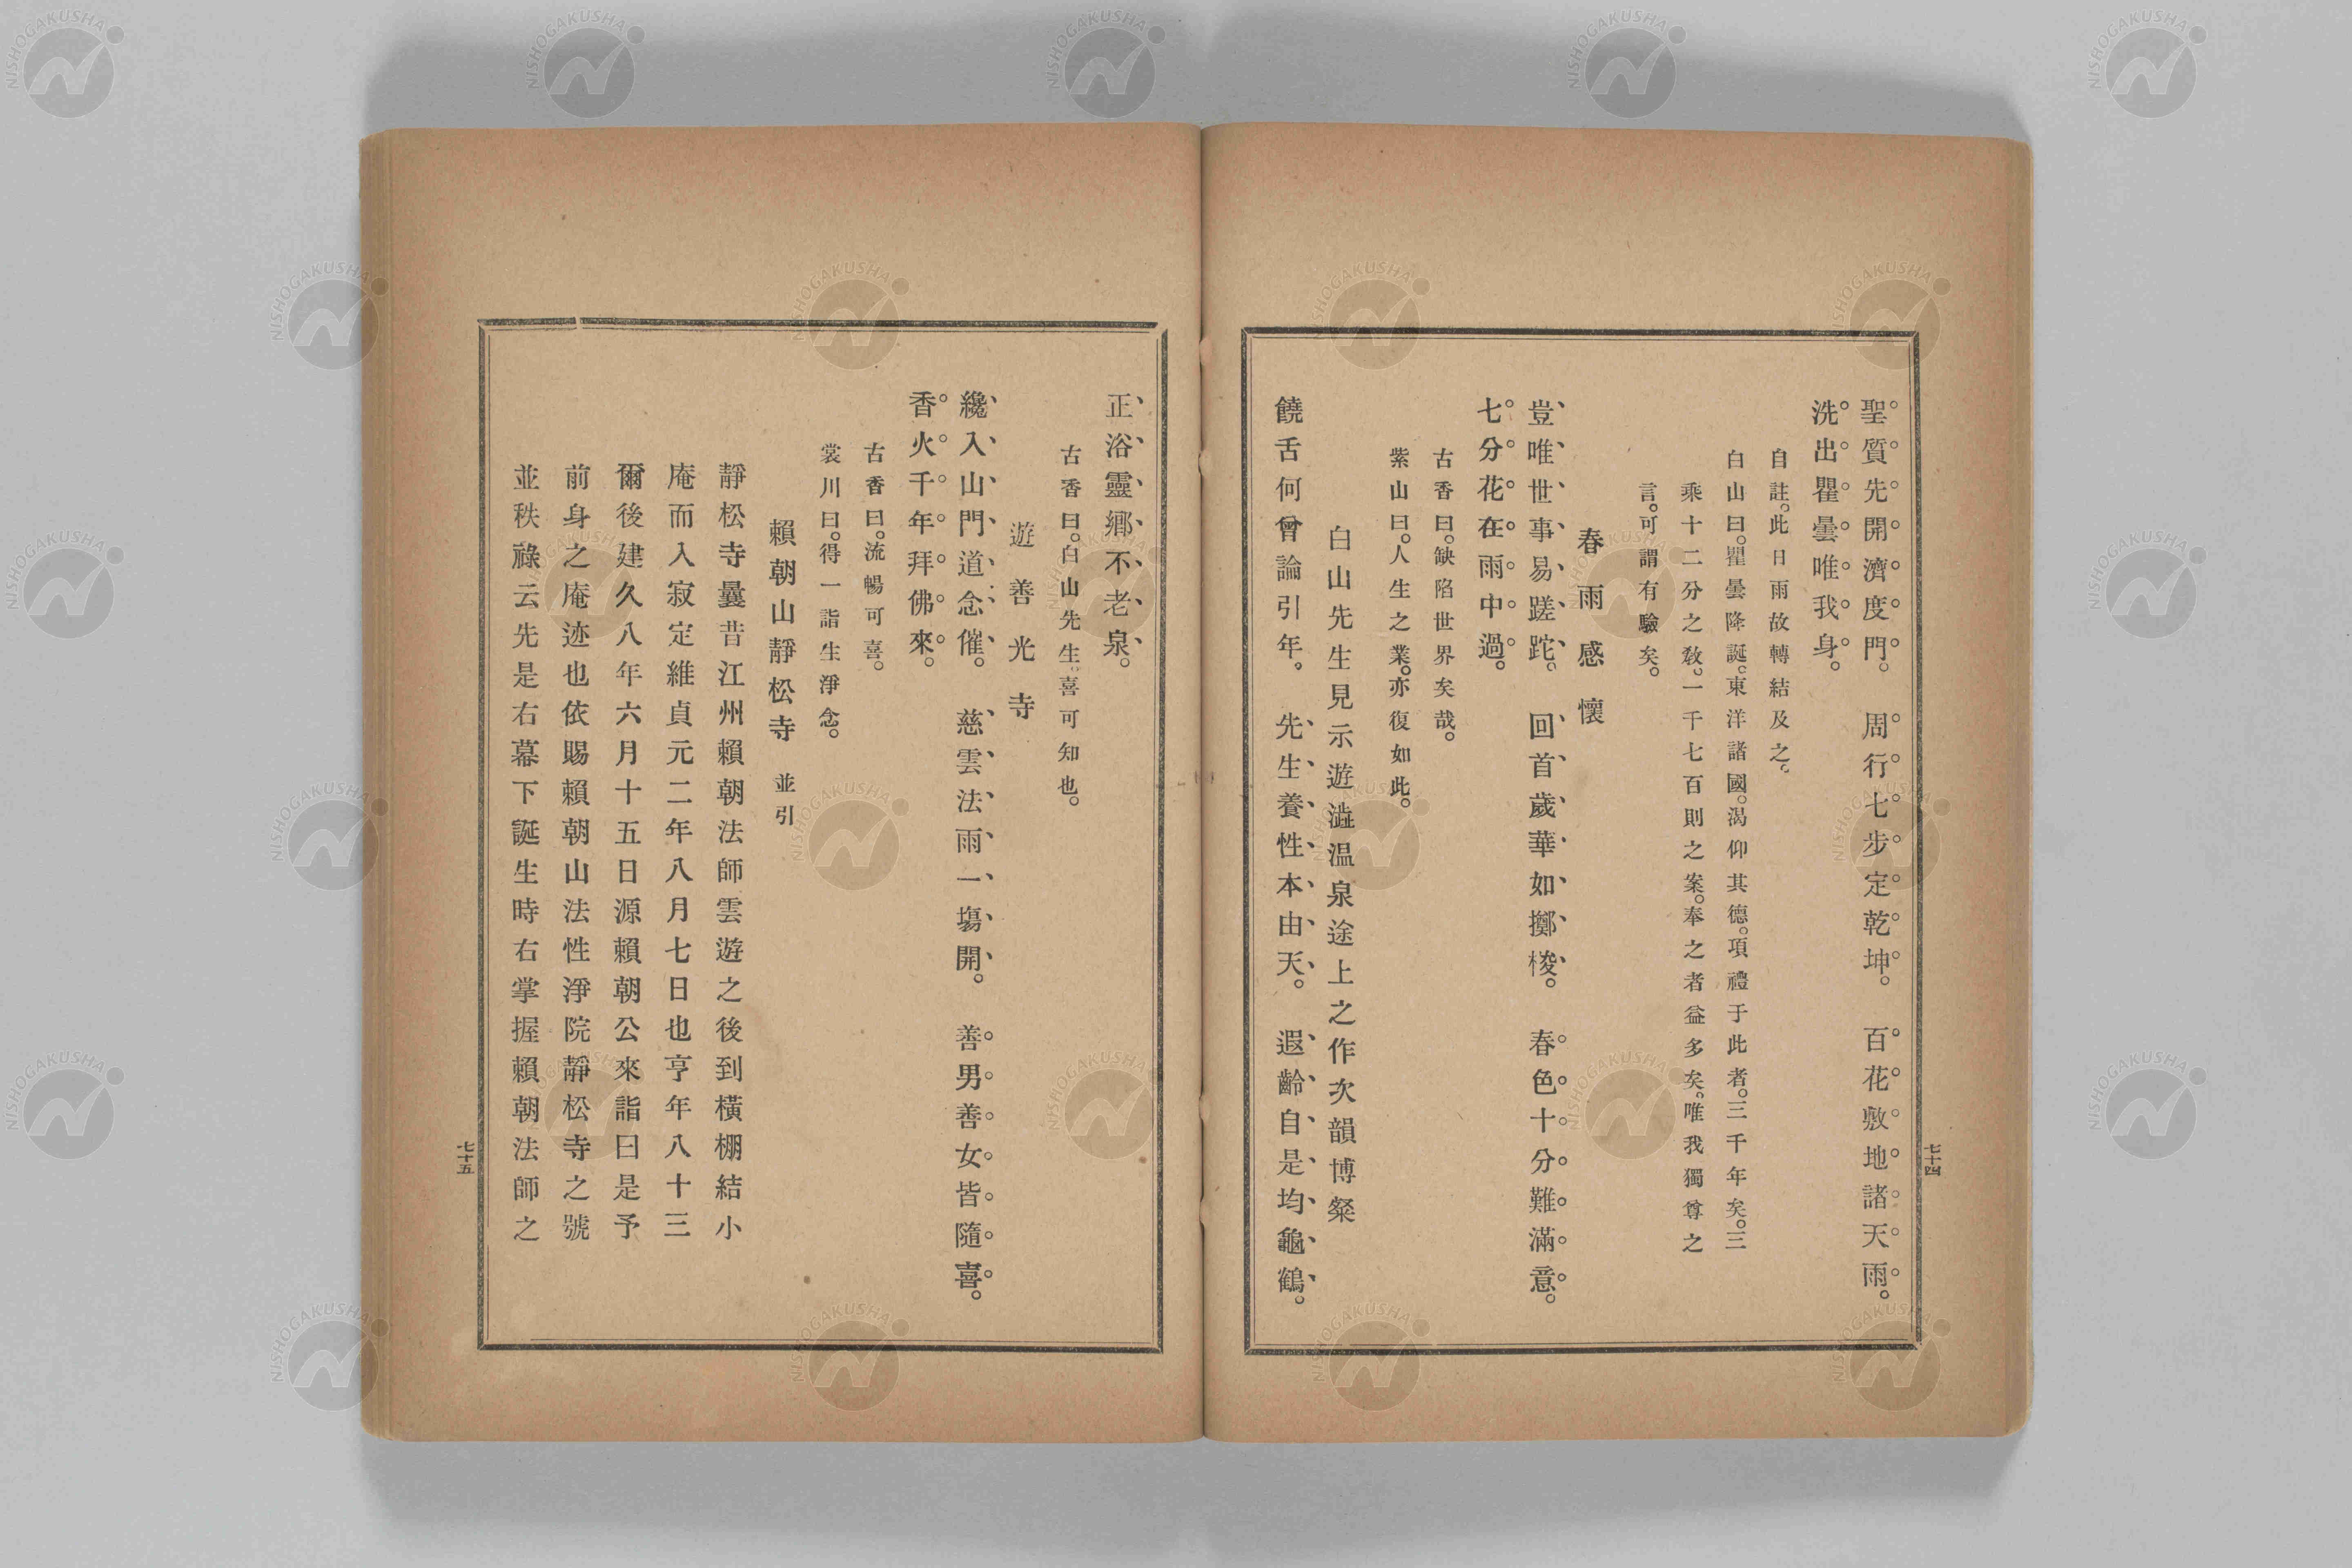 聖質先開濟度門。　周行七步定乾坤。　百花敷地諸天雨。
洗出瞿曇唯我身。
自註。此日雨故轉結及之。
白山曰。瞿曇降誕。東洋諸國。渴仰其德。項禮于此者。三千年矣。三
乘十二分之教。一千七百則之案。奉之者益多矣。唯我獨尊之
言。可謂有驗矣。
春雨感懷
豈唯世事易蹉跎。　回首歲華如擲梭。　春色十分難滿意。
七分花在雨中過。
古香曰。缺陷世界矣哉。
紫山曰。人生之業。亦復如此。
白山先生見示遊澁温泉途上之作次韻博粲
饒舌何曾論引年。　先生養性本由天。　遐齡自是均龜鶴。
七十四
正浴靈鄉不老泉。
古香曰。白山先生。喜可知也。
遊善光寺
纔入山門道念催。　慈雲法雨一塲開。　善男善女皆隨喜。
香火千年拜佛來。
古香曰。流暢可喜。
裳川曰。得一詣生淨念。
賴朝山靜松寺　並引
靜松寺曩昔江州賴朝法師雲遊之後到橫棚結小
庵而入寂定維貞元二年八月七日也亨年八十三
爾後建久八年六月十五日源賴朝公來詣曰是予
前身之庵迹也依賜賴朝山法性淨院靜松寺之號
並秩祿云先是右幕下誕生時右掌握賴朝法師之
七十五
NISHOGAKUSHA